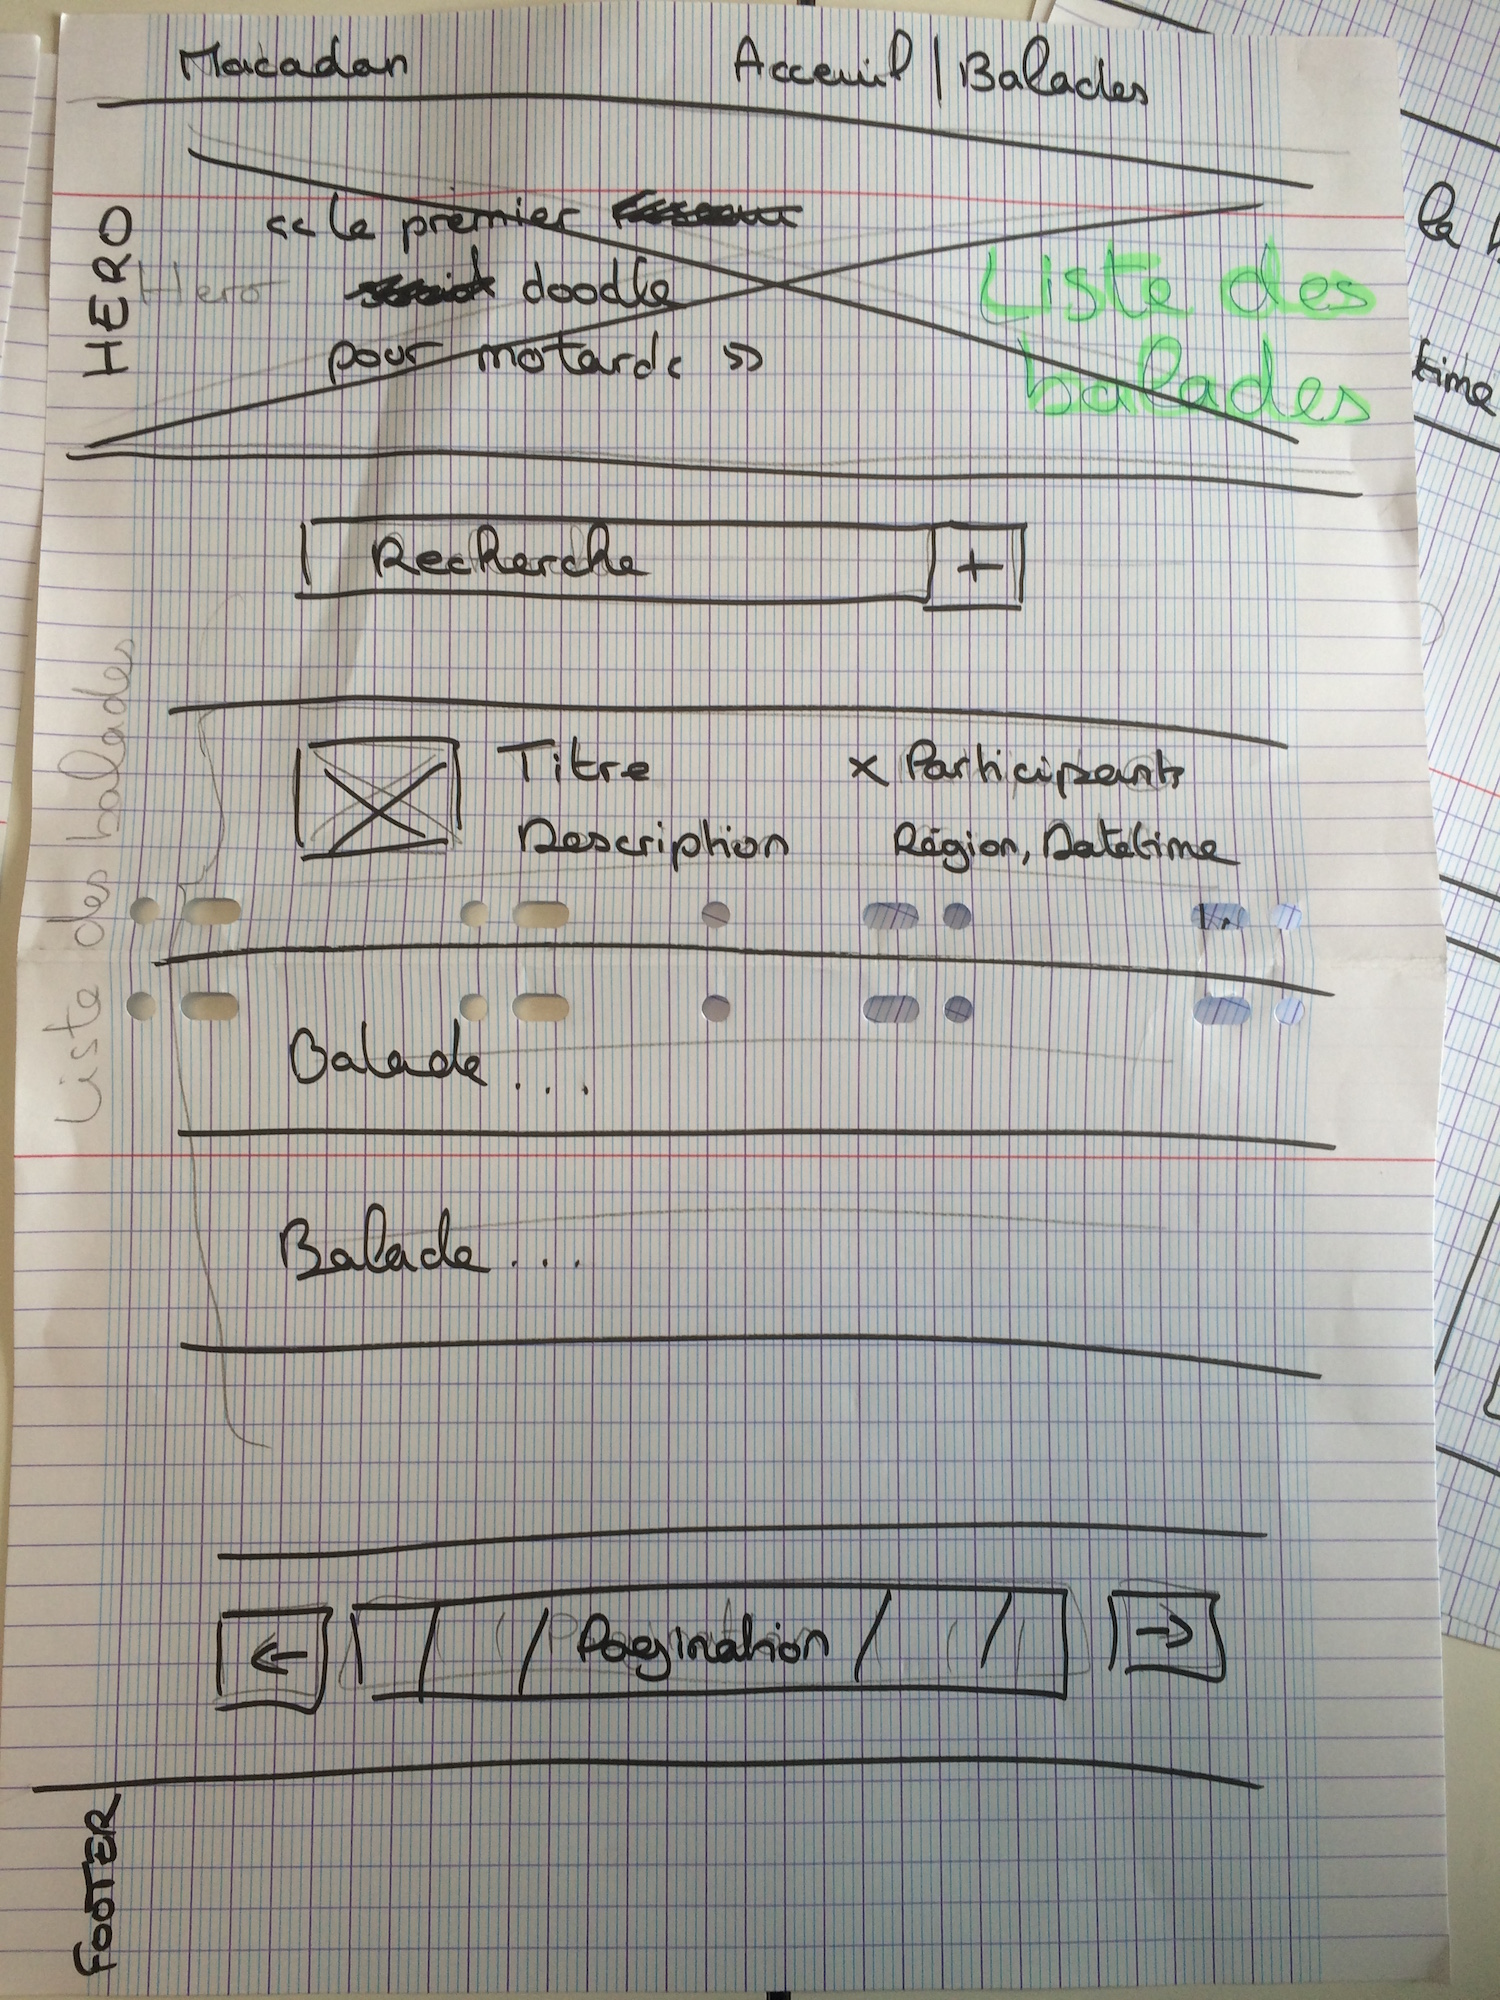 Macadan
Acceuil | Balades
HERO
Hero
<< le premier
doodle
pour motards >>
Liste des
balades
Recherche
+
Liste des balades
Titre
x Participants
Description
Région, Datetime
Balade ....
Balade ....
← Pagination →
FOOTER
la
time